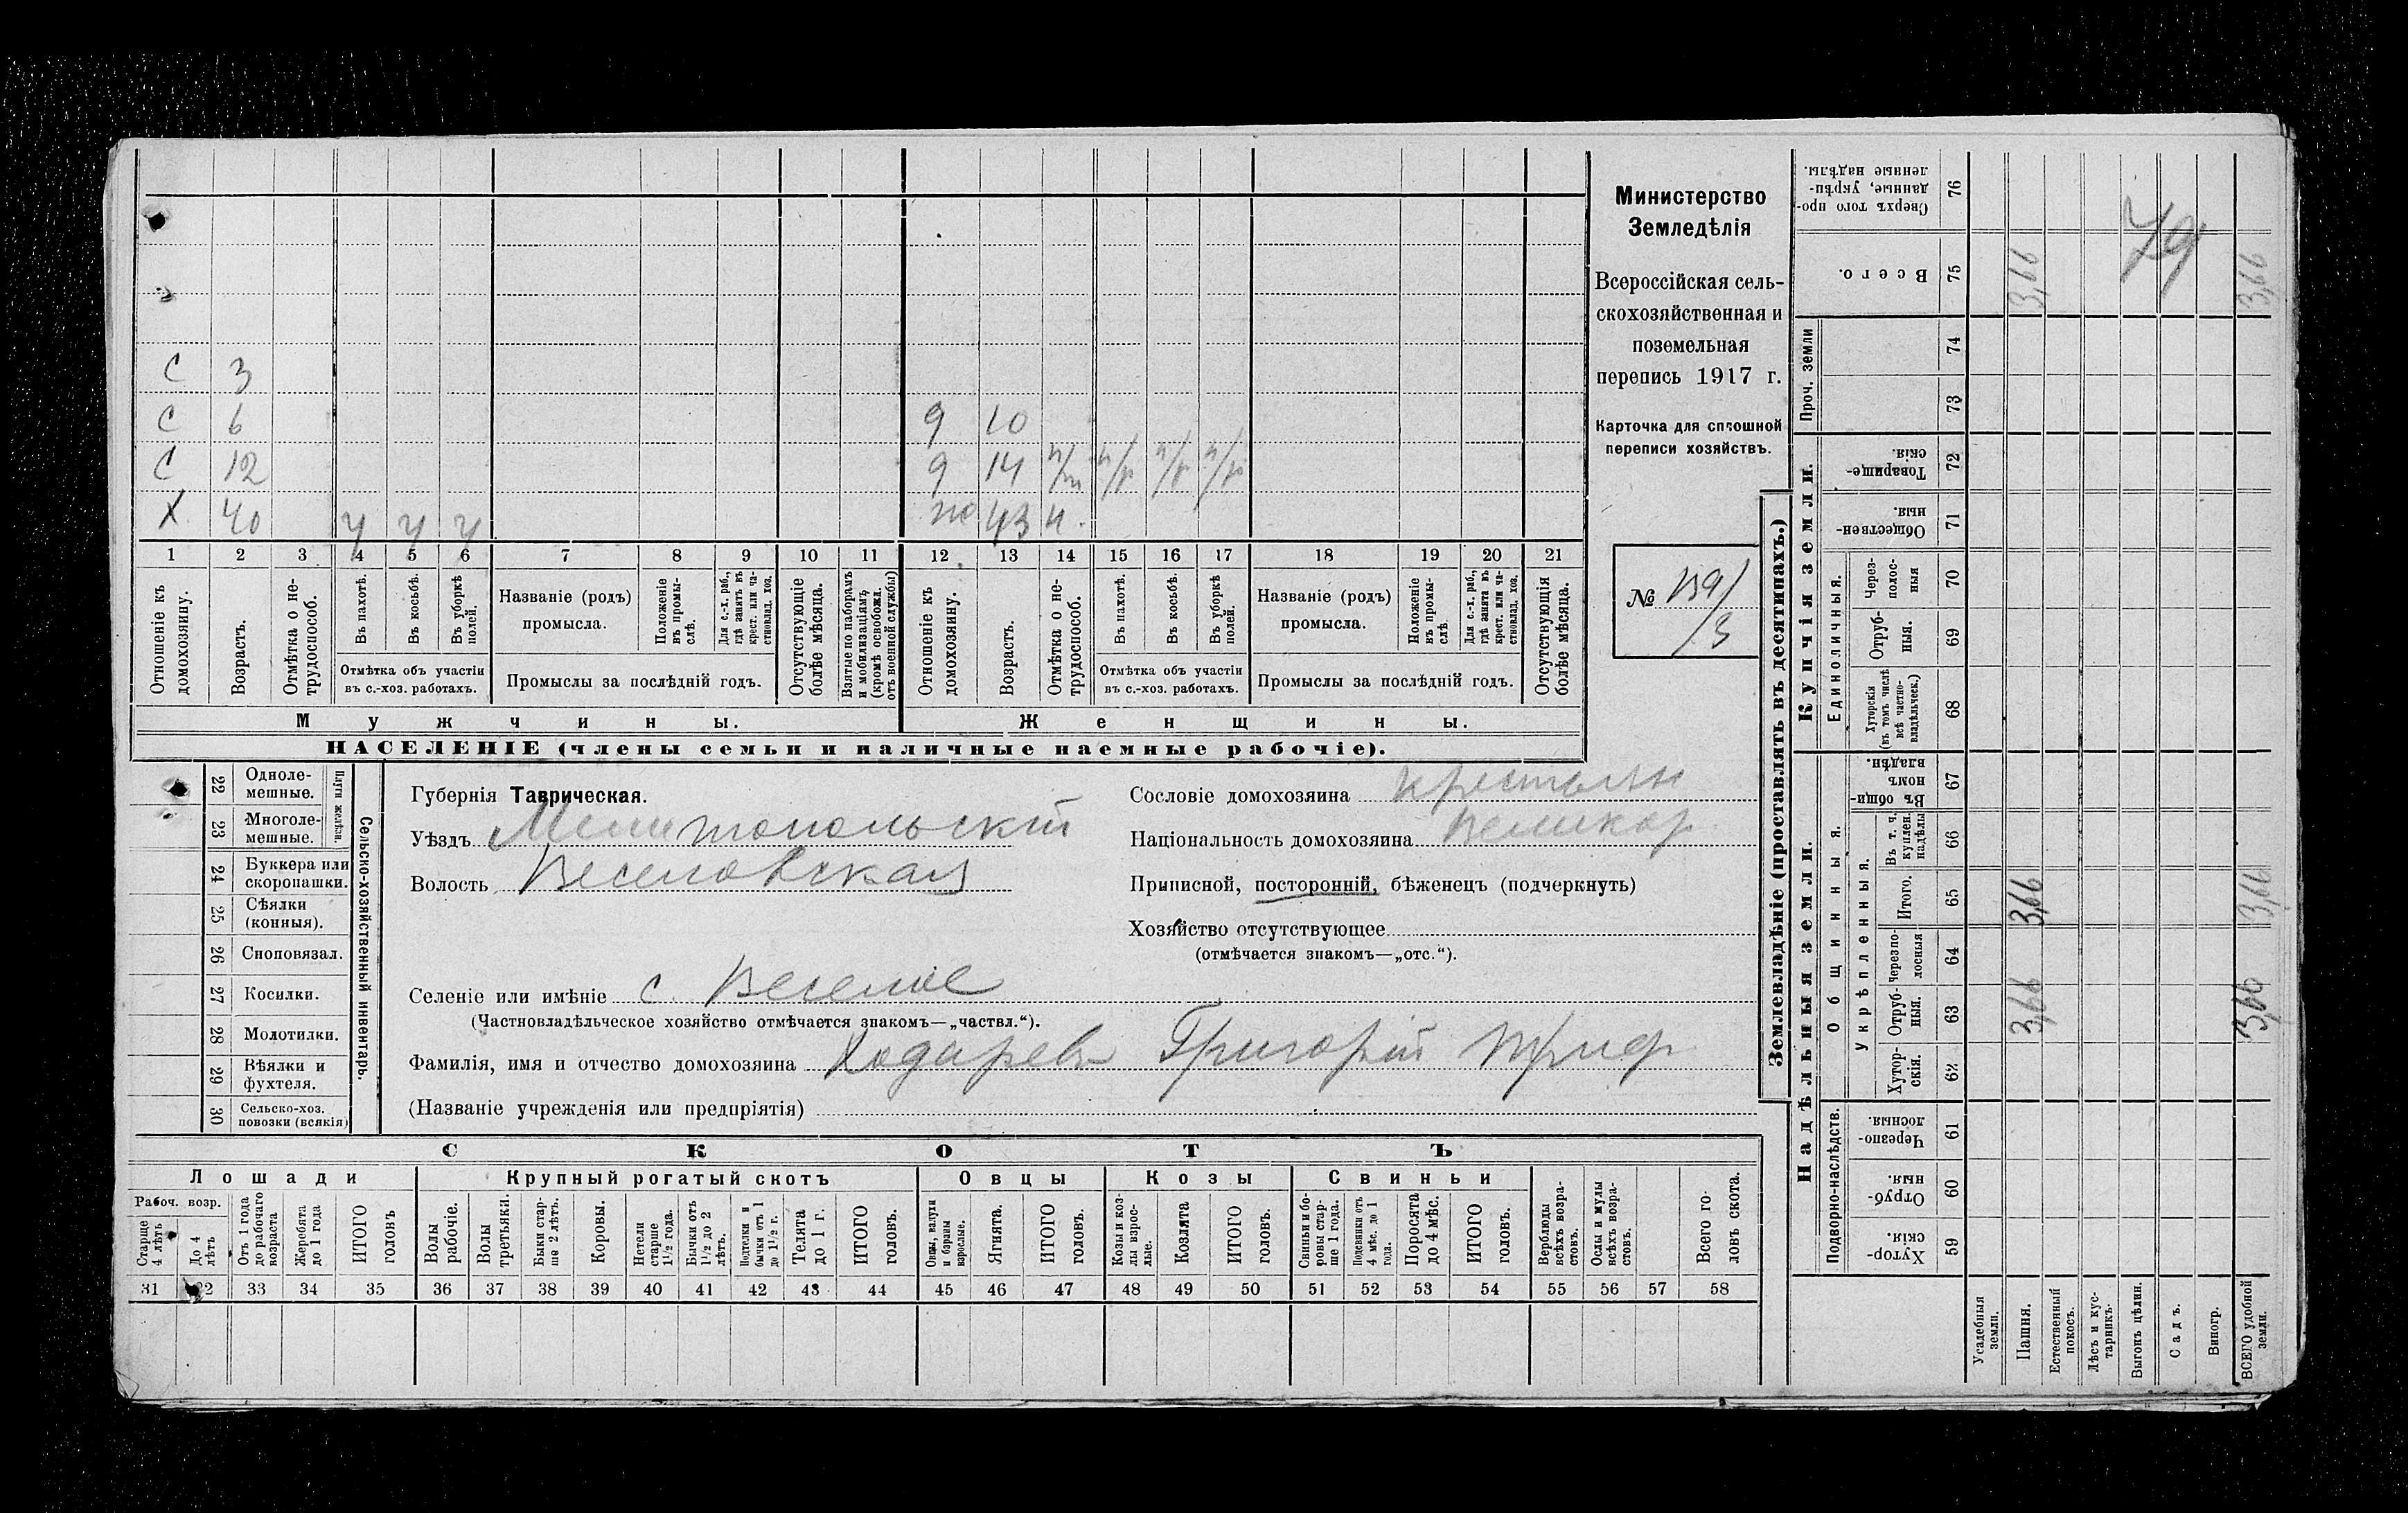 С 3
С 6 9 10
С 12 9 14 п/р п/р п/р
Х 40 у у у 43 н.
1 2 3 4 5 6 7 8 9 10 11 12 13 14 15 16 17 18 19 20 21
Отношеніе къ домохозяину.
Возрастъ.
Отмѣтка о не-
трудоспособ.
Въ пахотѣ.
Въ косьбѣ.
Въ уборкѣ
полей.
Отмѣтка объ участіи
въ с.-хоз. работахъ.
Названіе (родъ)
промысла.
Положеніе
въ промы-
слѣ.
Для с.-х. раб.,
гдѣ занятъ въ
крест. или ча-
стновлад. хоз.
Промыслы за послѣдній годъ.
Отсутствующіе
болѣе мѣсяца.
Взятые по наборамъ
и мобилизаціямъ
(кромѣ освобожд.
отъ военной службы)
Отношеніе къ
домохозяину.
Возрастъ.
Отмѣтка о не-
трудоспособ.
Въ пахотѣ.
Въ косьбѣ.
Въ уборкѣ
полей.
Отмѣтка объ участіи
въ с.-хоз. работахъ.
Названіе (родъ)
промысла.
Положеніе
въ промы-
слѣ
Для с.-х. раб.,
гдѣ занята въ
крест. или ча-
стновлад. хоз.
Промыслы за послѣдній годъ.
Отсутствующія
болѣе мѣсяца.
Мужчины.
Женщины.
НАСЕЛЕНІЕ (члены семьи и наличные наемные рабочіе).
Министерство
Земледѣлія
Всероссійская сель-
скохозяйственная и
поземельная
перепись 1917 г.
Карточка для сплошной
переписи хозяйствъ.
№ 139/3
22 Одноле-
мешные.
23 Многоле-
мешные.
Плуги желѣзн.
24 Буккера или
скоропашки.
25 Сѣялки
(конныя).
26 Сноповязал.
27 Косилки.
28 Молотилки.
29 Вѣялки и
фухтеля.
30 Сельско-хоз.
повозки (всякія)
Сельско-хозяйственный инвентарь.
Губернія Таврическая.
Уѣздъ Мелитопольскій
Волость Веселовская
Сословіе домохозяина крестьян
Національность домохозяина великор
Приписной, посторонній, бѣженецъ (подчеркнуть)
Хозяйство отсутствующее
(отмѣчается знакомъ—„отс.“).
Селеніе или имѣніе с. Веселое
(Частновладѣльческое хозяйство отмѣчается знакомъ—„частвл.“).
Фамилія, имя и отчество домохозяина Ходаревъ Григорій Триф
(Названіе учрежденія или предпріятія)
СКОТЪ
Лошади Крупный рогатый скотъ Овцы Козы Свиньи
Рабоч. возр.
Старше
4 лѣтъ
До 4
лѣтъ
Отъ 1 года
до рабочаго
возраста
Жеребята
до 1 года
ИТОГО
головъ
Волы
рабочіе.
Волы
третьяки.
Быки стар-
ше 2 лѣтъ.
Коровы.
Нетели
старше
1½ года.
Бычки отъ
1½ до 2
лѣтъ.
Подтелки и
бычки отъ 1
до 1½ г.
Телята
до 1 г.
ИТОГО
головъ.
Овцы, валухи
и бараны
взрослые.
Ягнята.
ИТОГО
головъ.
Козы и коз-
лы взрос-
лые.
Козлята
ИТОГО
головъ.
Свиньи и бо-
ровы стар-
ше 1 года.
Подсвинки отъ
4 мѣс. до 1
года.
Поросята
до 4 мѣс.
ИТОГО
головъ.
Верблюды
всѣхъ возра-
стовъ.
Ослы и мулы
всѣхъ возра-
стовъ.
Всего го-
ловъ скота.
31 32 33 34 35 36 37 38 39 40 41 42 43 44 45 46 47 48 49 50 51 52 53 54 55 56 57 58
Землевладѣніе (проставлять въ десятинахъ.)
Надѣльныя земли.
Купчія земли.
Проч. земли
Подворно-наслѣдств.
Общинныя.
Укрѣпленныя.
Единоличныя.
Сверхъ того про-
данные, укрѣп-
ленные надѣлы.
76
Всего.
75 3,66 79 3,66
74
73
Товарище-
скія.
72
Обществен-
ныя.
71
Через-
полос-
ныя
70
Отруб-
ныя.
69
Хуторскія
(въ томъ числѣ
всѣ частно-
владѣльческ.)
68
Въ общи-
номъ
владѣн.
67
Въ т. ч.
куплен.
надѣлы
66
Итого.
65 3,66 3,66
Черезпо-
лосныя
64
Отруб-
ныя.
63 3,66 3,66
Хутор-
скія.
62
Черезпо-
лосныя.
61
Отруб-
ныя.
60
Хутор-
скія.
59
Усадебныя
земли.
Пашня.
Естественный
покосъ.
Лѣсъ и кус-
тарникъ.
Выгонъ цѣлин.
Садъ.
Виногр.
ВСЕГО удобной
земли.